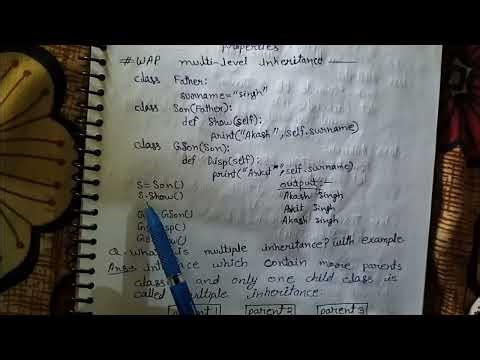 properties
#-WAP multi-level inheritance
class Father:
surname="singh"
class Son(Father):
def Show(self):
print("Akash", self.surname)
class GSon(Son):
def Disp(self):
print("Ankit", self.surname)
S=Son() output:-
S.Show() Akash Singh
Ankit Singh
GSon() Akash Singh
Q- is multiple inheritance? with example
Ans: inheritance which contain more parents
class and only one child class is
called multiple inheritance
parent 1 parent 2 parent 3